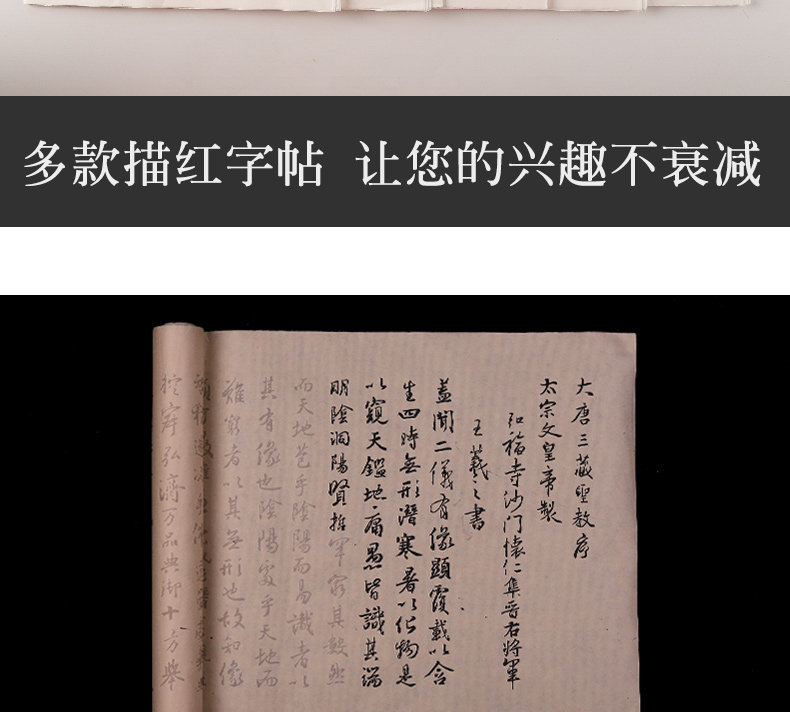 多款描红字帖 让您的兴趣不衰减
大唐三藏聖教序
太宗文皇帝製
弘福寺沙門懷仁集晋右將軍
王羲之書
蓋聞二儀有像顯覆載以含
生四時無形潛寒暑以化物是
以窺天鑑地庸愚皆識其端
明陰洞陽賢哲罕窮其數然
而天地苞乎陰陽而易識者以
其有像也陰陽處乎天地而
難窮者以其無形也故知像
控寂弘濟万品典御十方舉